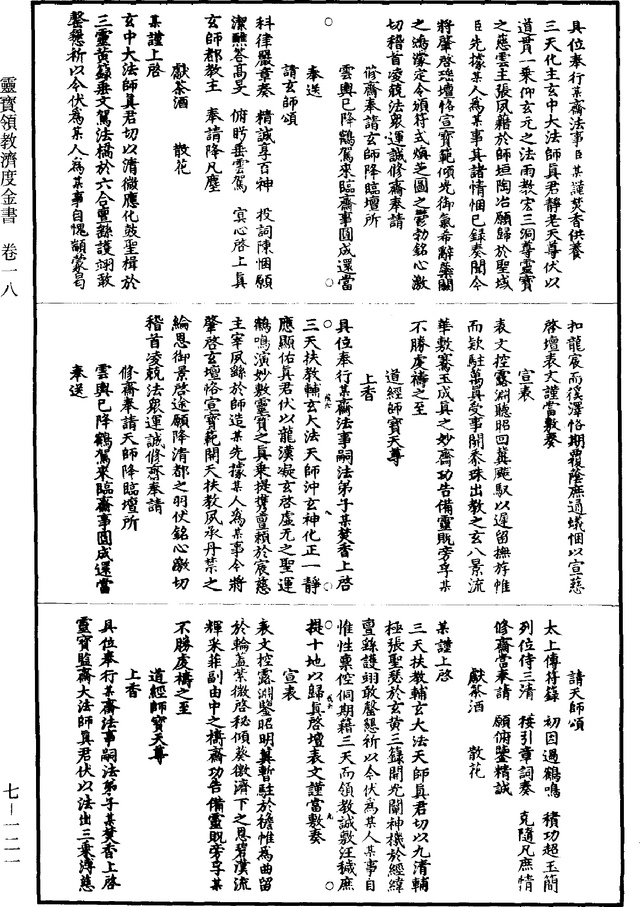 具位奉行某齋法事臣某謹焚香供養
三天化主玄中大法師真君靜老天尊伏以
道貫一乘仰玄元之法雨教宏三洞尊靈寶
之慈雲主張夙藉於師垣陶冶願歸於聖域
臣先據某人為某事具諸情悃已錄奏聞今
將肇啓瑤壇恪宣寶範傾光御氣希辭蘂闕
之鴻濛定令頒符式煥芝圖之鬱勃銘心激
切稽首凌兢法衆運誠修齋奉請
修齋奉請玄師降臨壇所
雲輿已降鶴駕來臨齋事圓成還當
奉送
請玄師頌
科律嚴章奏　精誠享百神　投詞陳悃願
潔醮荅高旻　俯眄垂雲駕　冥心啓上真
玄師都教主　奉請降凡塵
獻茶酒　散花
某謹上啓
玄中大法師真君切以清微應化鼓聖楫於
三靈黃籙垂文駕法橋於六合亶繇護翊敢
罄懇祈以今伏為某人為某事自愧顓蒙曷
扣龍宸而徯澤恪期覆蔭庶通蟻悃以宣慈
啓壇表文謹當敷奏
宣表
表文控露淵聽昭回冀飈馭以遲留撫旍帷
而欵駐萬真受事開黍珠出教之玄八景流
華敷騫玉成真之妙齋功告備靈貺旁孚某
不勝虔禱之至
道經師寶天尊
上香
具位奉行某齋法事嗣法弟子某焚香上啓
三天扶教輔玄大法天師沖玄神化正一靜
應顯佑真君伏以龍漢凝玄啓虛无之聖運
鶴鳴演妙敷靈寶之真乘提攜亶賴於宸慈
主宰夙繇於師造某先據某人為某事今將
肇啓玄壇恪宣寶範開天扶教夙承丹禁之
綸恩御景啓途願降清都之羽伏銘心激切
稽首凌兢法衆運誠修齋奉請
修齋奉請天師降臨壇所
雲輿已降鶴駕來臨齋事圓成還當
奉送
請天師頌
太上傳符籙　初因遇鶴鳴　積功超玉簡
列位侍三清　接引章詞奏　克隨凡庶情
修齋當奉請　願俯鑒精誠
獻茶酒　散花
某謹上啓
三天扶教輔玄大法天師真君切以九清輔
極張聖瑟於玄黃三籙開光闡神機於經緯
亶繇護翊敢罄懇祈以今伏為某人某事自
惟性稟倥侗期藉三天而領教誠敷汪穢庶
提十地以歸真啓壇表文謹當敷奏
宣表
表文控露淵鑒昭明冀暫駐於檐帷為曲留
於輪蓋紫微啓秘傾葵徼濟下之恩碧漢流
輝采菲副由中之禱齋功告備靈貺旁孚某
不勝虔禱之至
道經師寶天尊
上香
具位奉行某齋法事嗣法弟子某焚香上啓
靈寶監齋大法師真君伏以法出三乘溥慈
靈寶領教濟度金書　卷一八
七—一二一